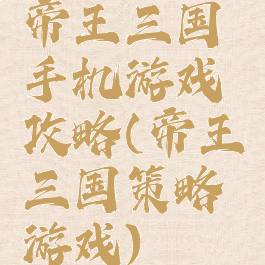 帝王三国
手机游戏
攻略(帝王
三国策略
游戏)